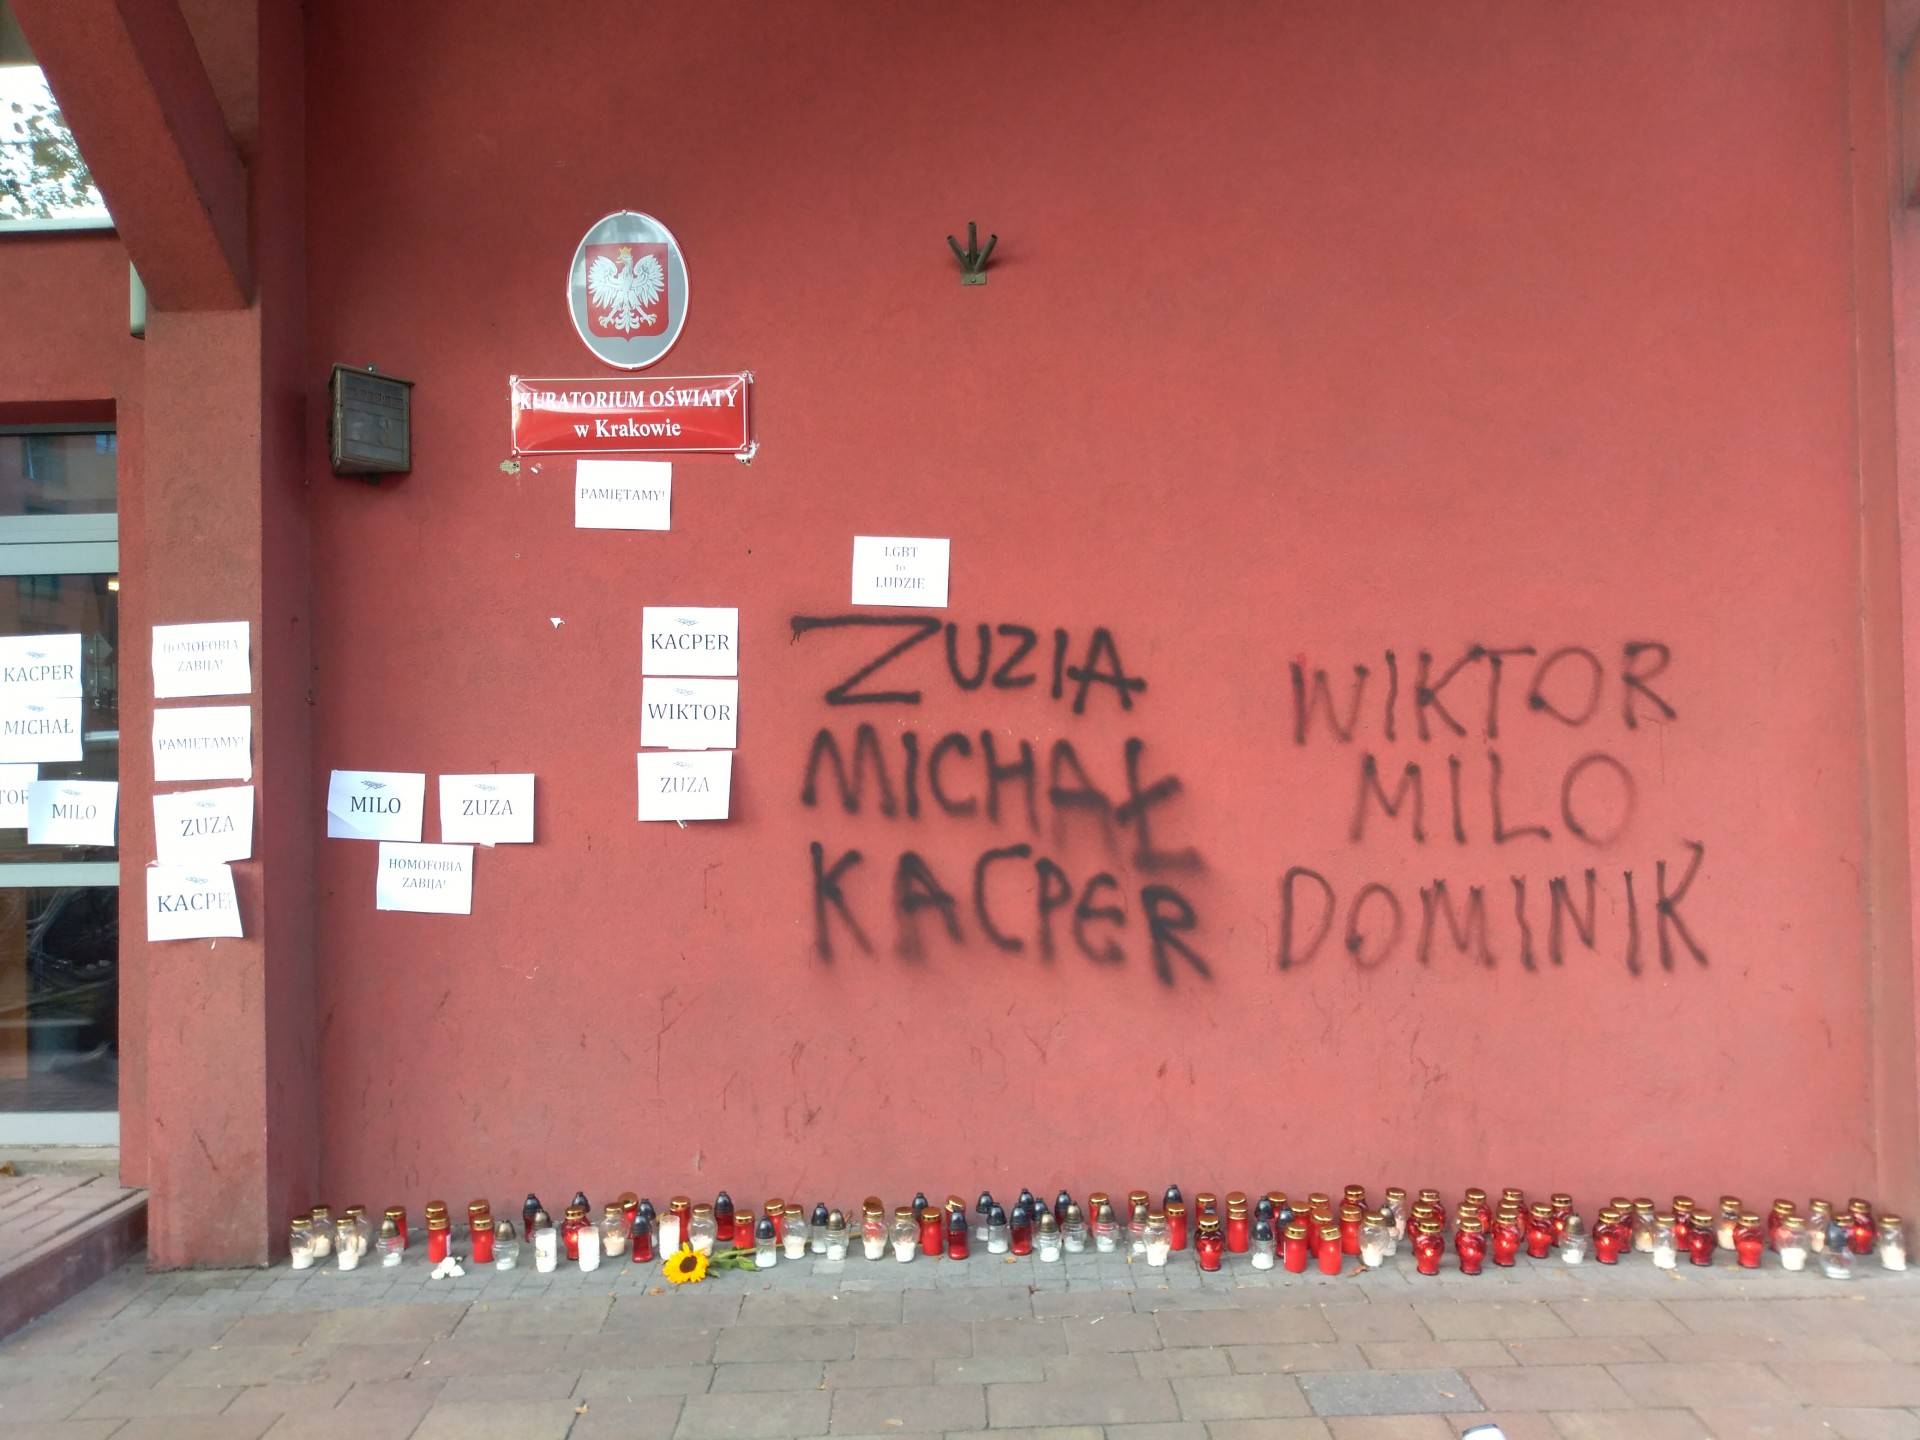 KURATORIUM OŚWIATY
w Krakowie
PAMIĘTAMY!
LGBT
to
LUDZIE
KACPER
WIKTOR
ZUZA
ZUZIA
MICHAŁ
KACPER
WIKTOR
MILO
DOMINIK
KACPER
MICHAŁ
MILO
HOMOFOBIA
ZABIJA!
PAMIĘTAMY!
ZUZA
KACPER
MILO
ZUZA
HOMOFOBIA
ZABIJA!